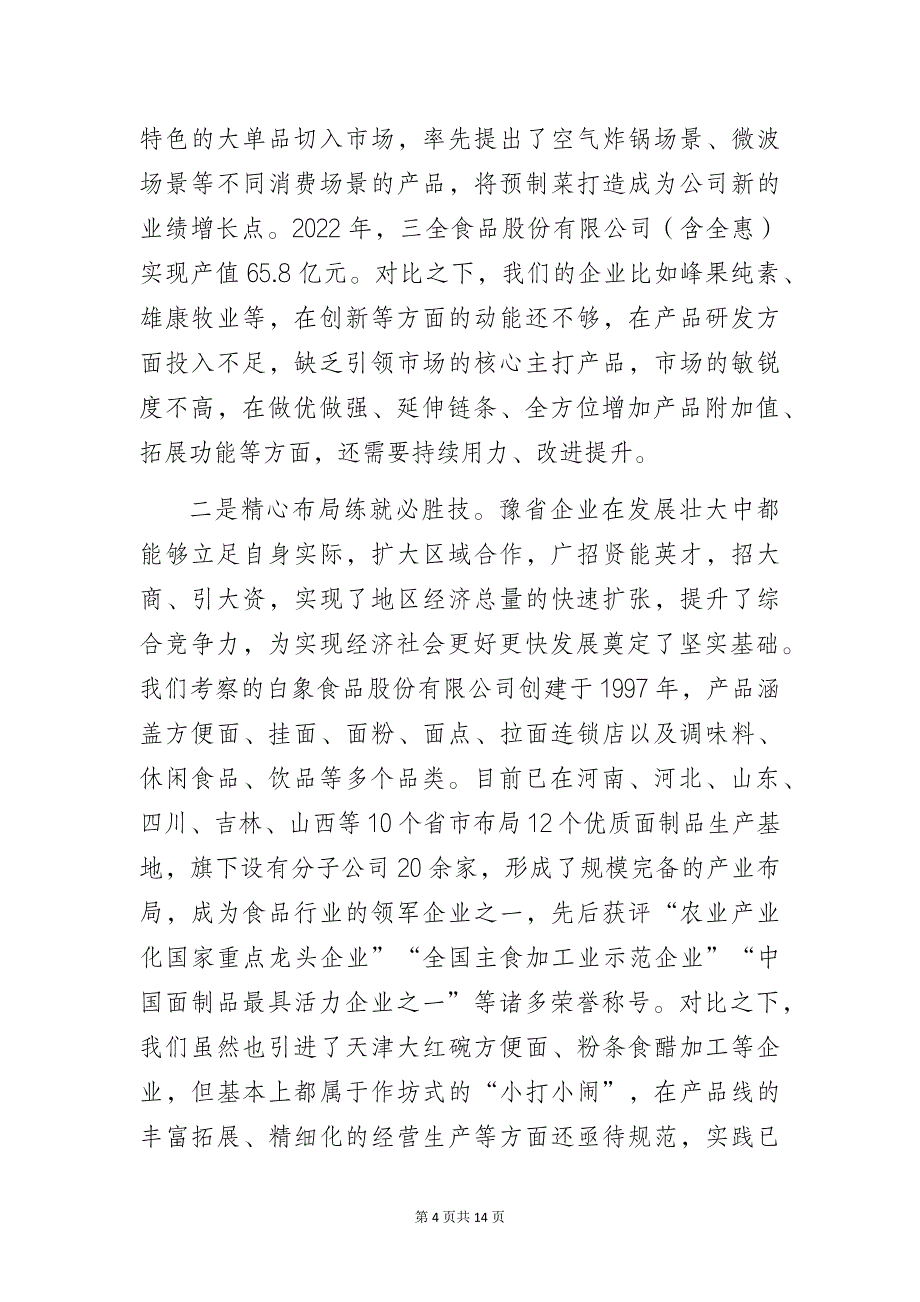 特色的大单品切入市场，率先提出了空气炸锅场景、微波
场景等不同消费场景的产品，将预制菜打造成为公司新的
业绩增长点。2022 年，三全食品股份有限公司（含全惠）
实现产值 65.8 亿元。对比之下，我们的企业比如峰果纯素、
雄康牧业等，在创新等方面的动能还不够，在产品研发方
面投入不足，缺乏引领市场的核心主打产品，市场的敏锐
度不高，在做优做强、延伸链条、全方位增加产品附加值、
拓展功能等方面，还需要持续用力、改进提升。
二是精心布局练就必胜技。豫省企业在发展壮大中都
能够立足自身实际，扩大区域合作，广招贤能英才，招大
商、引大资，实现了地区经济总量的快速扩张，提升了综
合竞争力，为实现经济社会更好更快发展奠定了坚实基础。
我们考察的白象食品股份有限公司创建于 1997 年，产品涵
盖方便面、挂面、面粉、面点、拉面连锁店以及调味料、
休闲食品、饮品等多个品类。目前已在河南、河北、山东、
四川、吉林、山西等 10 个省市布局 12 个优质面制品生产基
地，旗下设有分子公司 20 余家，形成了规模完备的产业布
局，成为食品行业的领军企业之一，先后获评“农业产业
化国家重点龙头企业”“全国主食加工业示范企业”“中
国面制品最具活力企业之一”等诸多荣誉称号。对比之下，
我们虽然也引进了天津大红碗方便面、粉条食醋加工等企
业，但基本上都属于作坊式的“小打小闹”，在产品线的
丰富拓展、精细化的经营生产等方面还亟待规范，实践已
第 4 页共 14 页